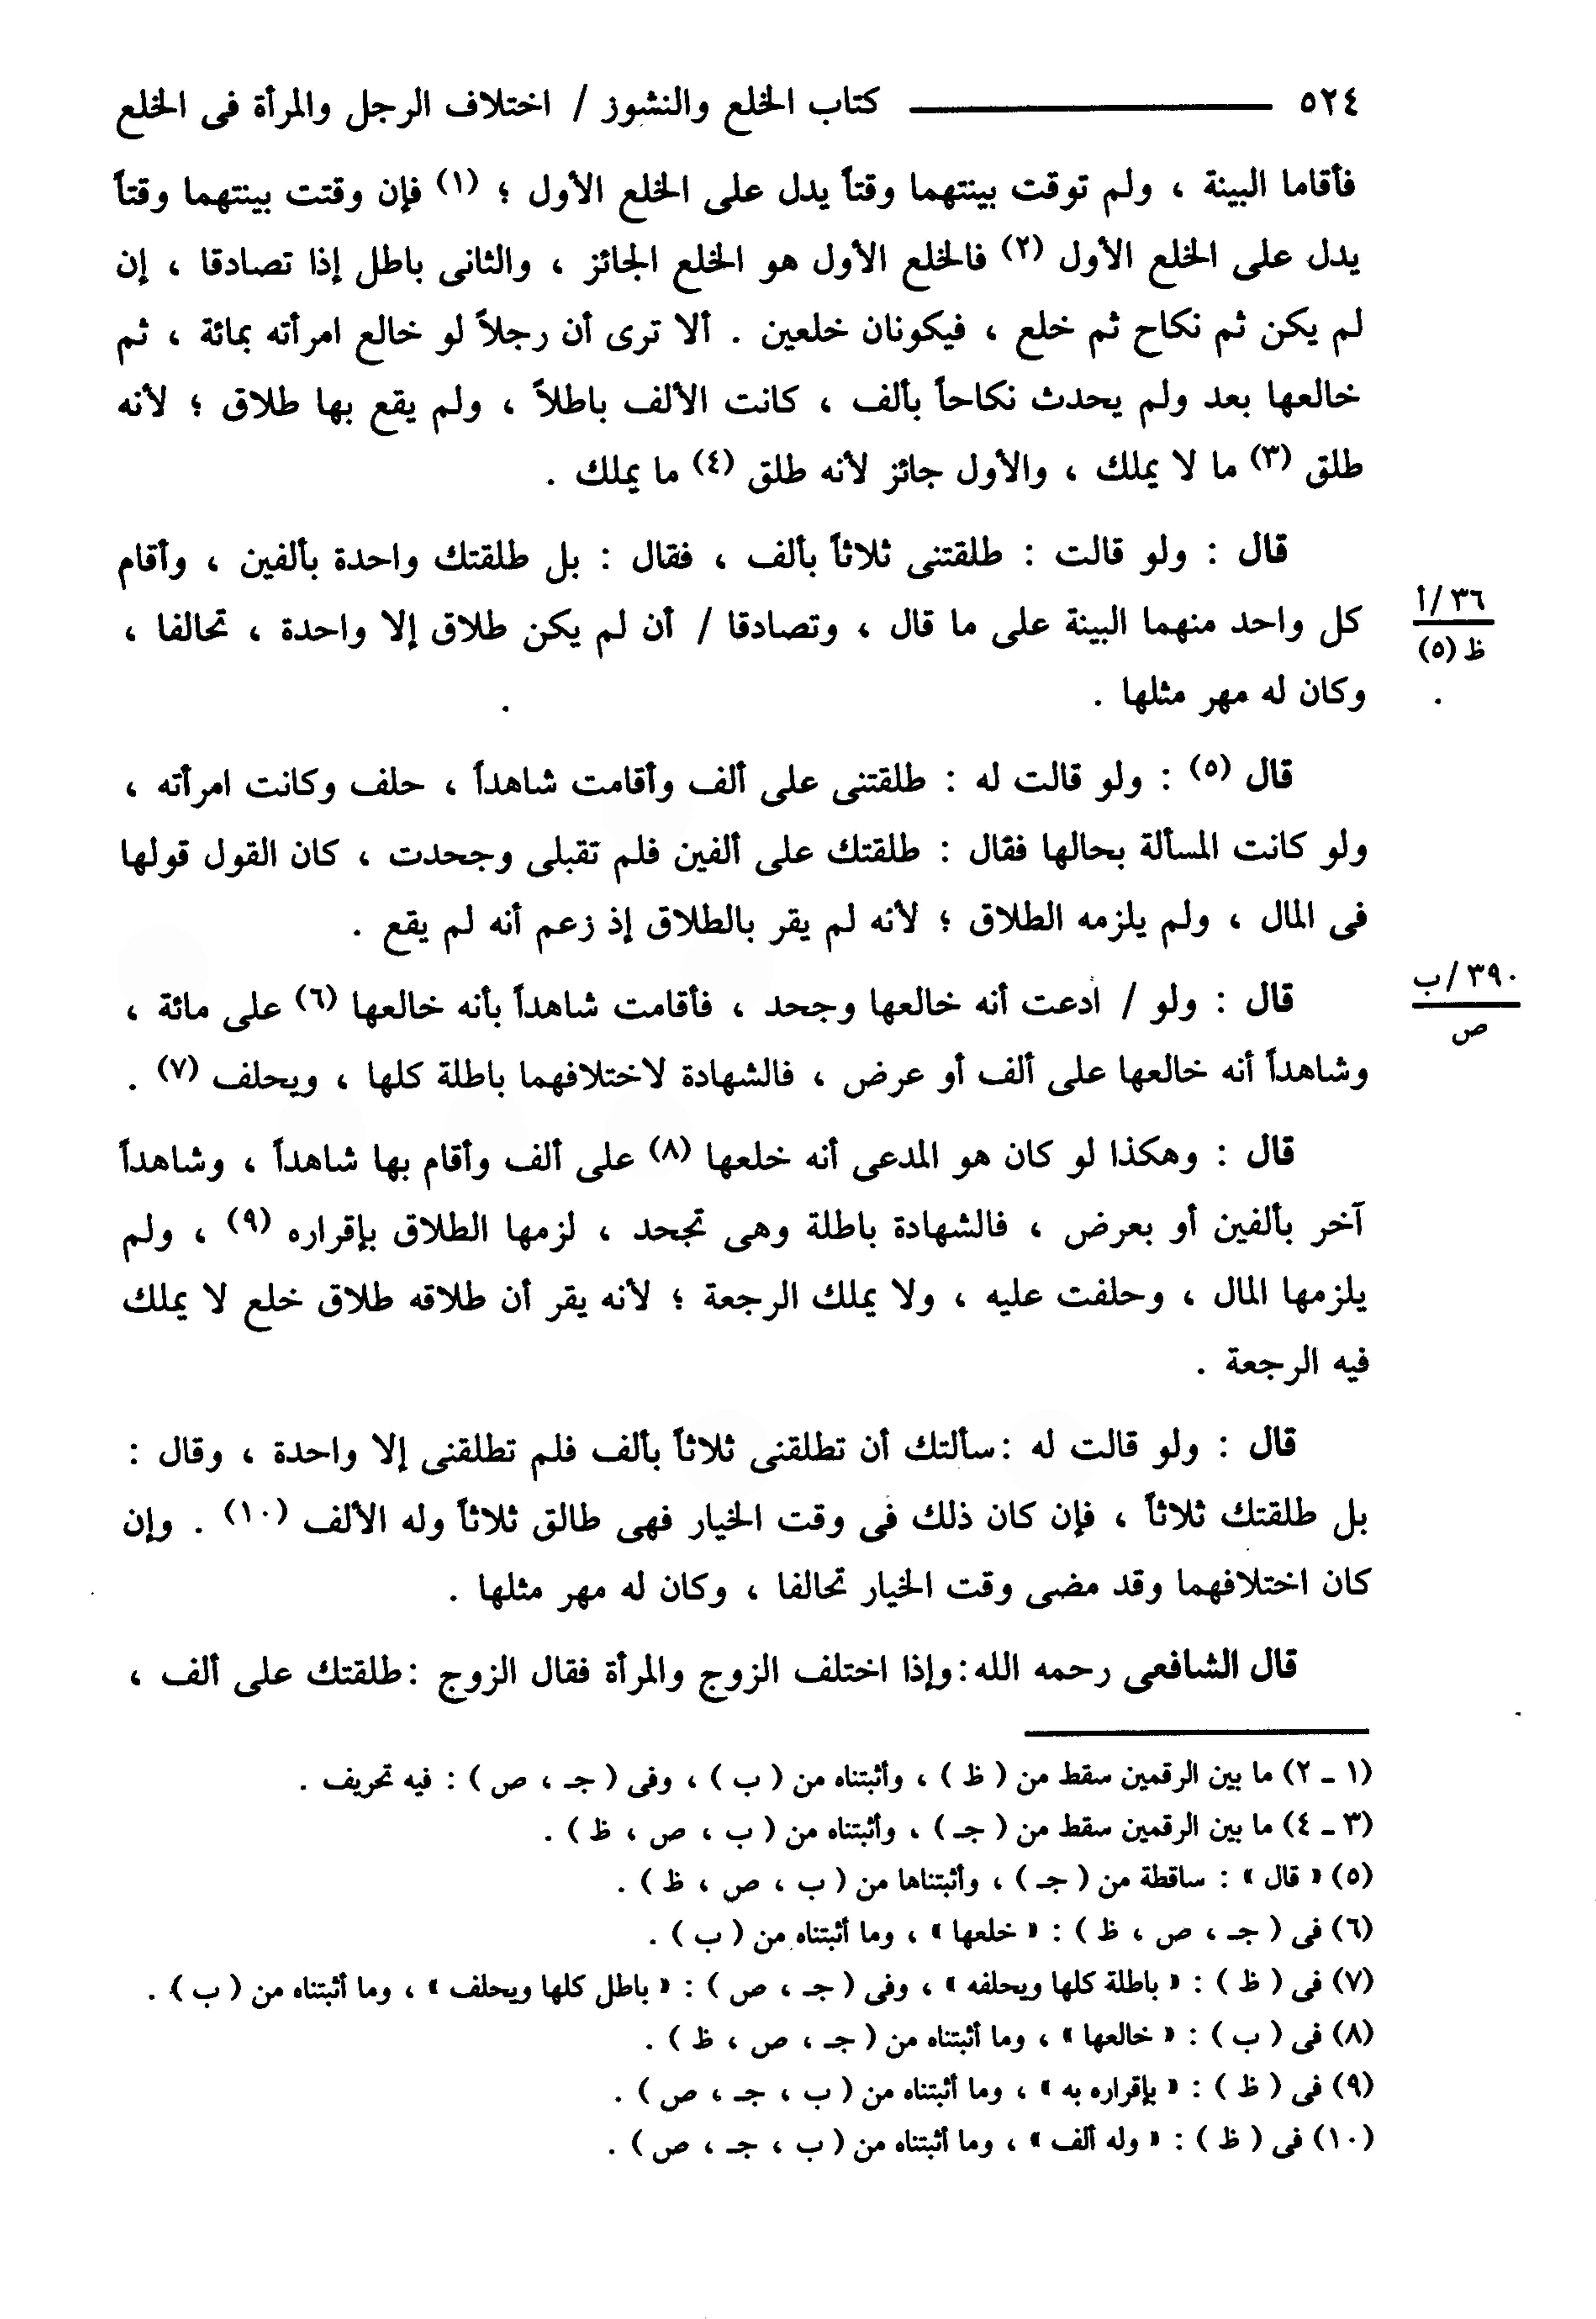 ٥٢٤ ــــــــــــــــــــ كتاب الخلع والنشوز / اختلاف الرجل والمرأة فى الخلع
فأقاما البينة ، ولم توقت بينتهما وقتاً يدل على الخلع الأول ؛ (١) فإن وقتت بينتهما وقتاً
يدل على الخلع الأول (٢) فالخلع الأول هو الخلع الجائز ، والثانى باطل إذا تصادقا ، إن
لم يكن ثم نكاح ثم خلع ، فيكونان خلعين . ألا ترى أن رجلاً لو خالع امرأته بمائة ، ثم
خالعها بعد ولم يحدث نكاحاً بألف ، كانت الألف باطلاً ، ولم يقع بها طلاق ؛ لأنه
طلق (٣) ما لا يملك ، والأول جائز لأنه طلق (٤) ما يملك .
قال : ولو قالت : طلقتنى ثلاثاً بألف ، فقال : بل طلقتك واحدة بألفين ، وأقام
كل واحد منهما البينة على ما قال ، وتصادقا / أن لم يكن طلاق إلا واحدة ، تحالفا ،
٣٦/أ
ظ (٥)
وكان له مهر مثلها .
قال (٥) : ولو قالت له : طلقتنى على ألف وأقامت شاهداً ، حلف وكانت امرأته ،
ولو كانت المسألة بحالها فقال : طلقتك على ألفين فلم تقبلى وجحدت ، كان القول قولها
فى المال ، ولم يلزمه الطلاق ؛ لأنه لم يقر بالطلاق إذ زعم أنه لم يقع .
قال : ولو / ادعت أنه خالعها وجحد ، فأقامت شاهداً بأنه خالعها (٦) على مائة ،
٣٩٠/ب
ص
وشاهداً أنه خالعها على ألف أو عرض ، فالشهادة لاختلافهما باطلة كلها ، ويحلف (٧) .
قال : وهكذا لو كان هو المدعى أنه خلعها (٨) على ألف وأقام بها شاهداً ، وشاهداً
آخر بألفين أو بعرض ، فالشهادة باطلة وهى تجحد ، لزمها الطلاق بإقراره (٩) ، ولم
يلزمها المال ، وحلفت عليه ، ولا يملك الرجعة ؛ لأنه يقر أن طلاقه طلاق خلع لا يملك
فيه الرجعة .
قال : ولو قالت له : سألتك أن تطلقنى ثلاثاً بألف فلم تطلقنى إلا واحدة ، وقال :
بل طلقتك ثلاثاً ، فإن كان ذلك فى وقت الخيار فهى طالق ثلاثاً وله الألف (١٠) . وإن
كان اختلافهما وقد مضى وقت الخيار تحالفا ، وكان له مهر مثلها .
قال الشافعى رحمه الله : وإذا اختلف الزوج والمرأة فقال الزوج : طلقتك على ألف ،
(١ ـ ٢) ما بين الرقمين سقط من ( ظ ) ، وأثبتناه من ( ب ) ، وفى ( جـ ، ص ) : فيه تحريف .
(٣ ـ ٤) ما بين الرقمين سقط من ( جـ ) ، وأثبتناه من ( ب ، ص ، ظ ) .
(٥) « قال » : ساقطة من ( جـ ) ، وأثبتناها من ( ب ، ص ، ظ ) .
(٦) فى ( جـ ، ص ، ظ ) : « خلعها » ، وما أثبتناه من ( ب ) .
(٧) فى ( ظ ) : « باطلة كلها ويحلفه » ، وفى ( جـ ، ص ) : « باطل كلها ويحلف » ، وما أثبتناه من ( ب ) .
(٨) فى ( ب ) : « خالعها » ، وما أثبتناه من ( جـ ، ص ، ظ ) .
(٩) فى ( ظ ) : « بإقراره به » ، وما أثبتناه من ( ب ، جـ ، ص ) .
(١٠) فى ( ظ ) : « وله ألف » ، وما أثبتناه من ( ب ، جـ ، ص ) .